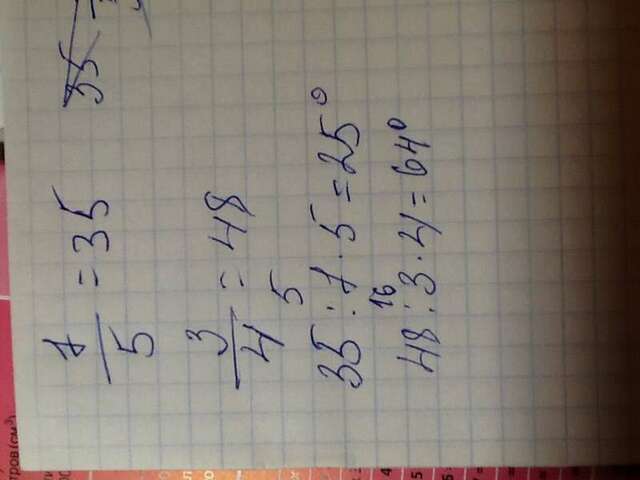 7/5 = 35
3/4 = 48
5
35 : 7 · 5 = 25°
16
48 : 3 · 4 = 64°
35
тров(см³)